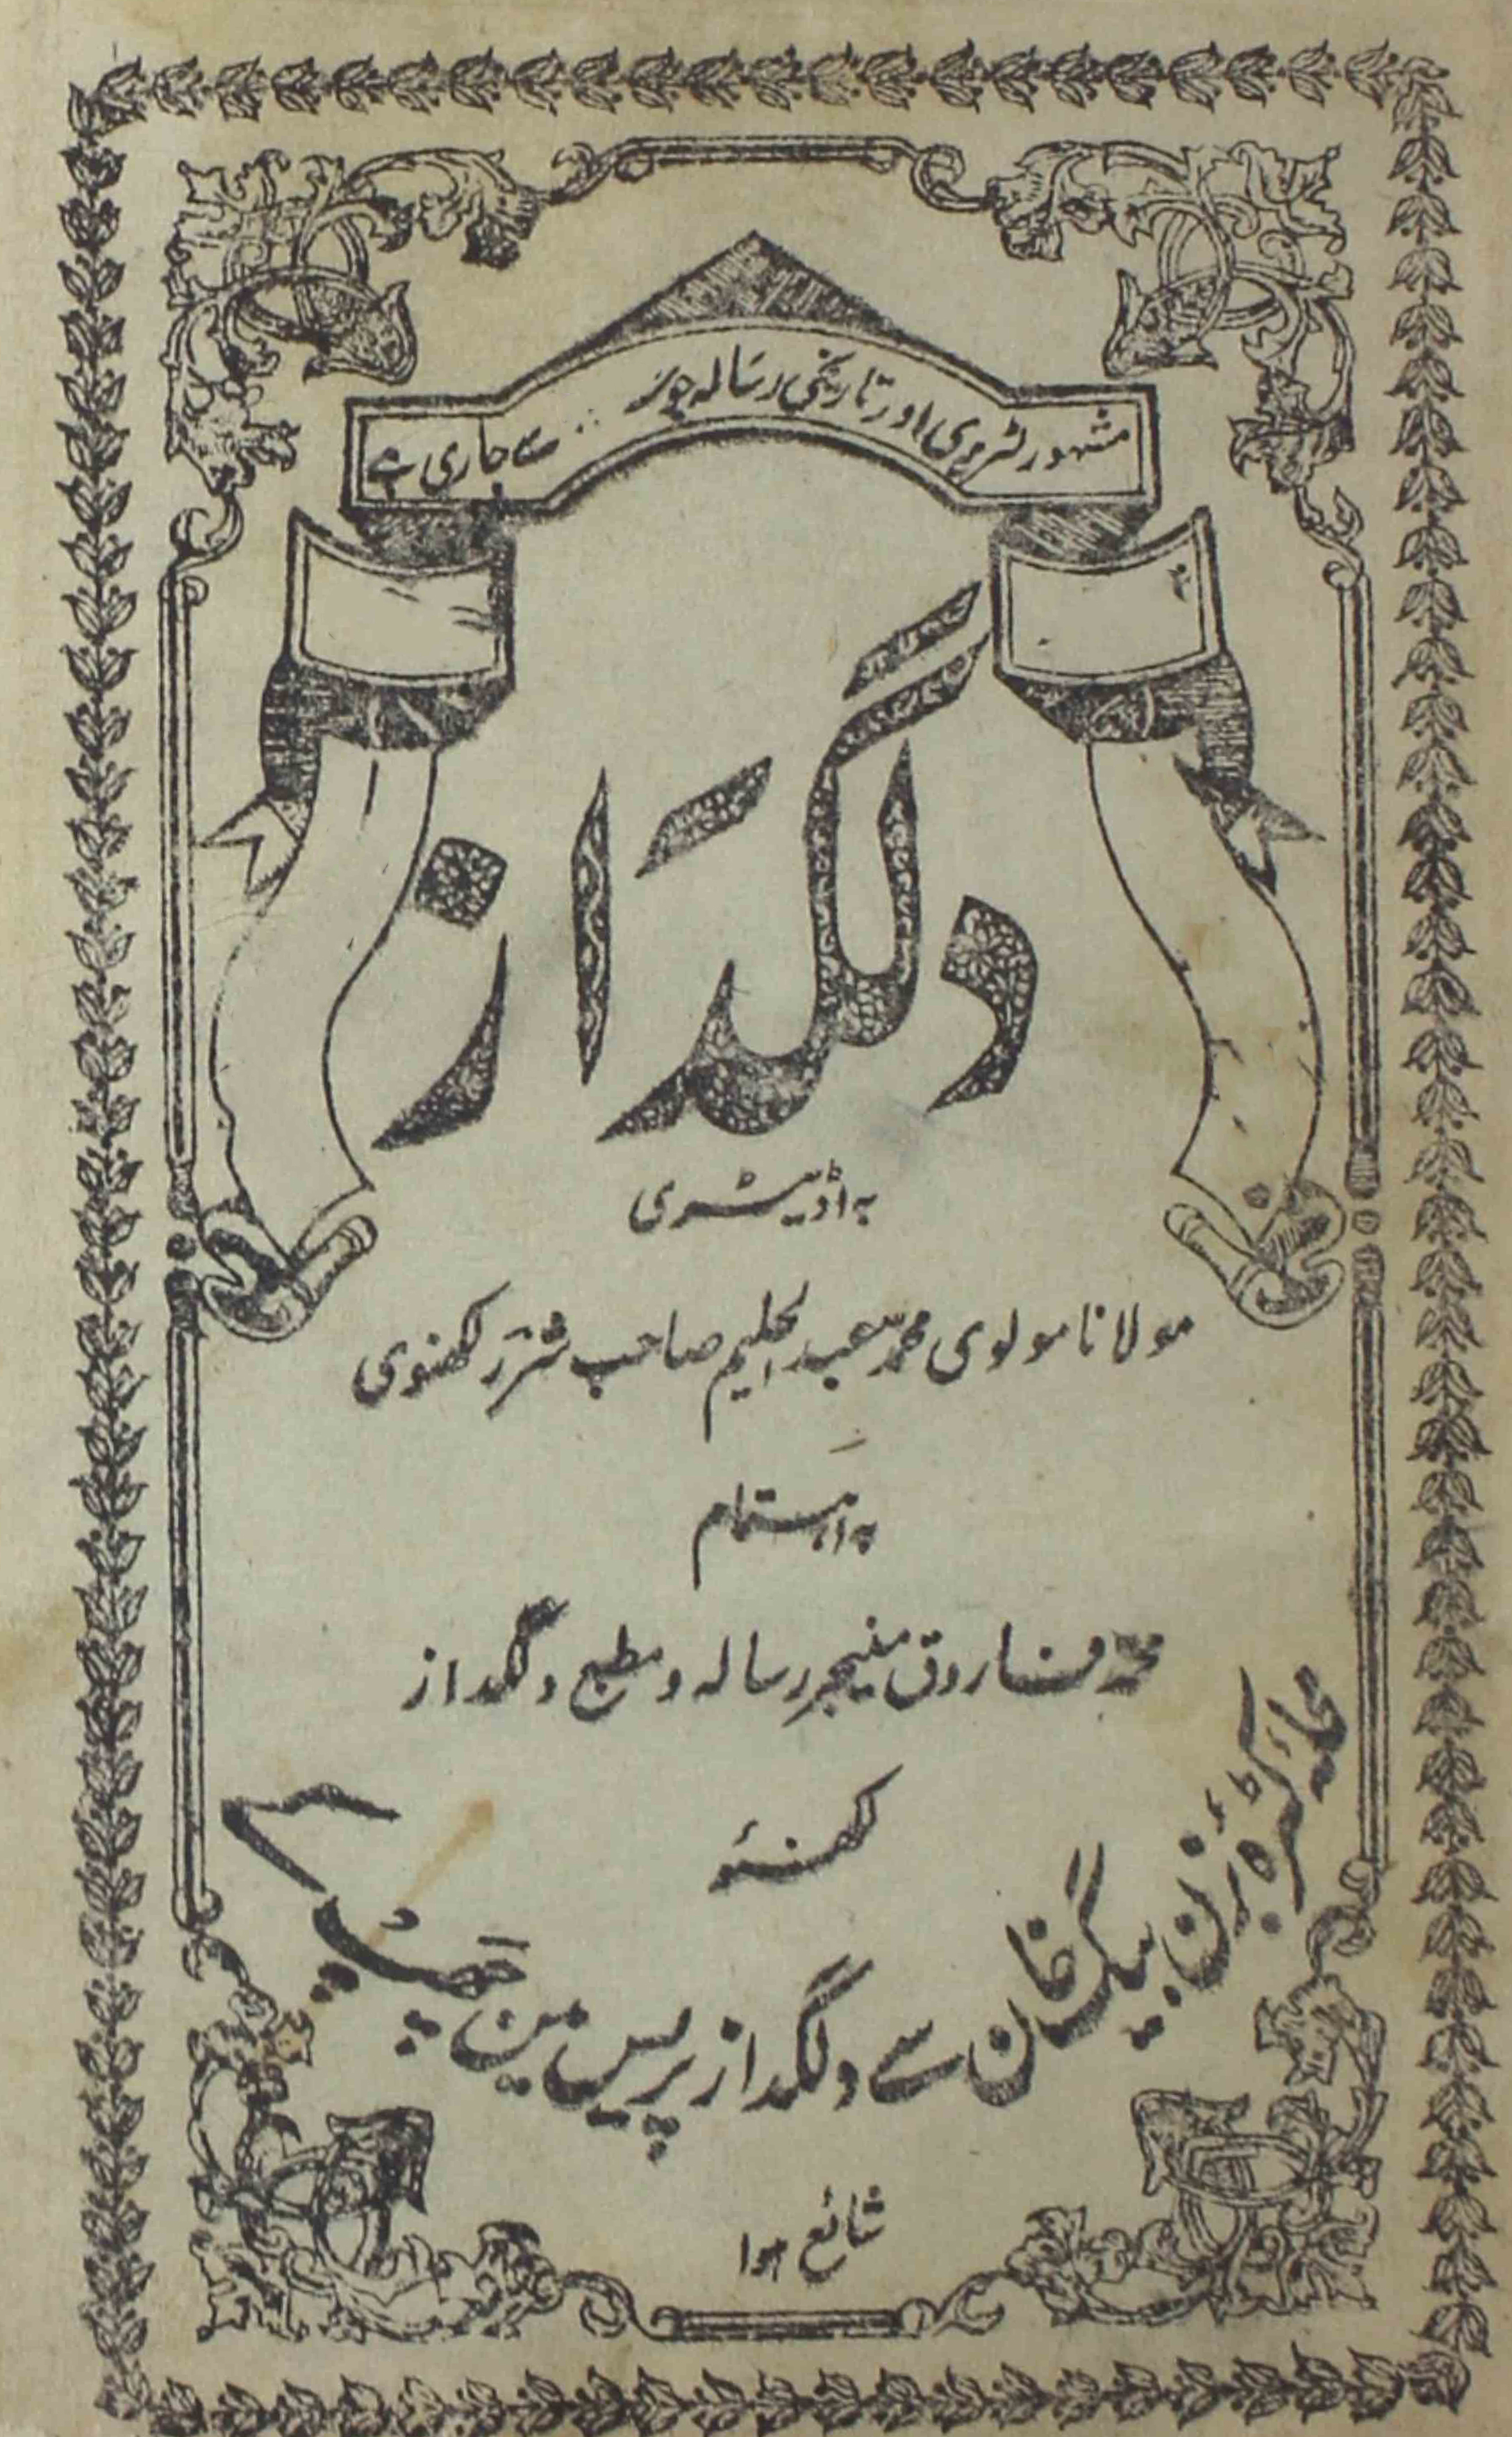 مشہور لٹریری اور تاریخی رسالہ جو سے جاری ہے
دلگداز
بہ اڈیٹری
مولانا مولوی محمد عبد الحلیم صاحب شرر لکھنوی
بہ اہتمام
محمد فاروق منیجر رسالہ و مطبع دلگداز
لکھنؤ
محلہ کٹرہ بزن بیگ خان سے دلگداز پریس مین چھپ کے
شائع ہوا